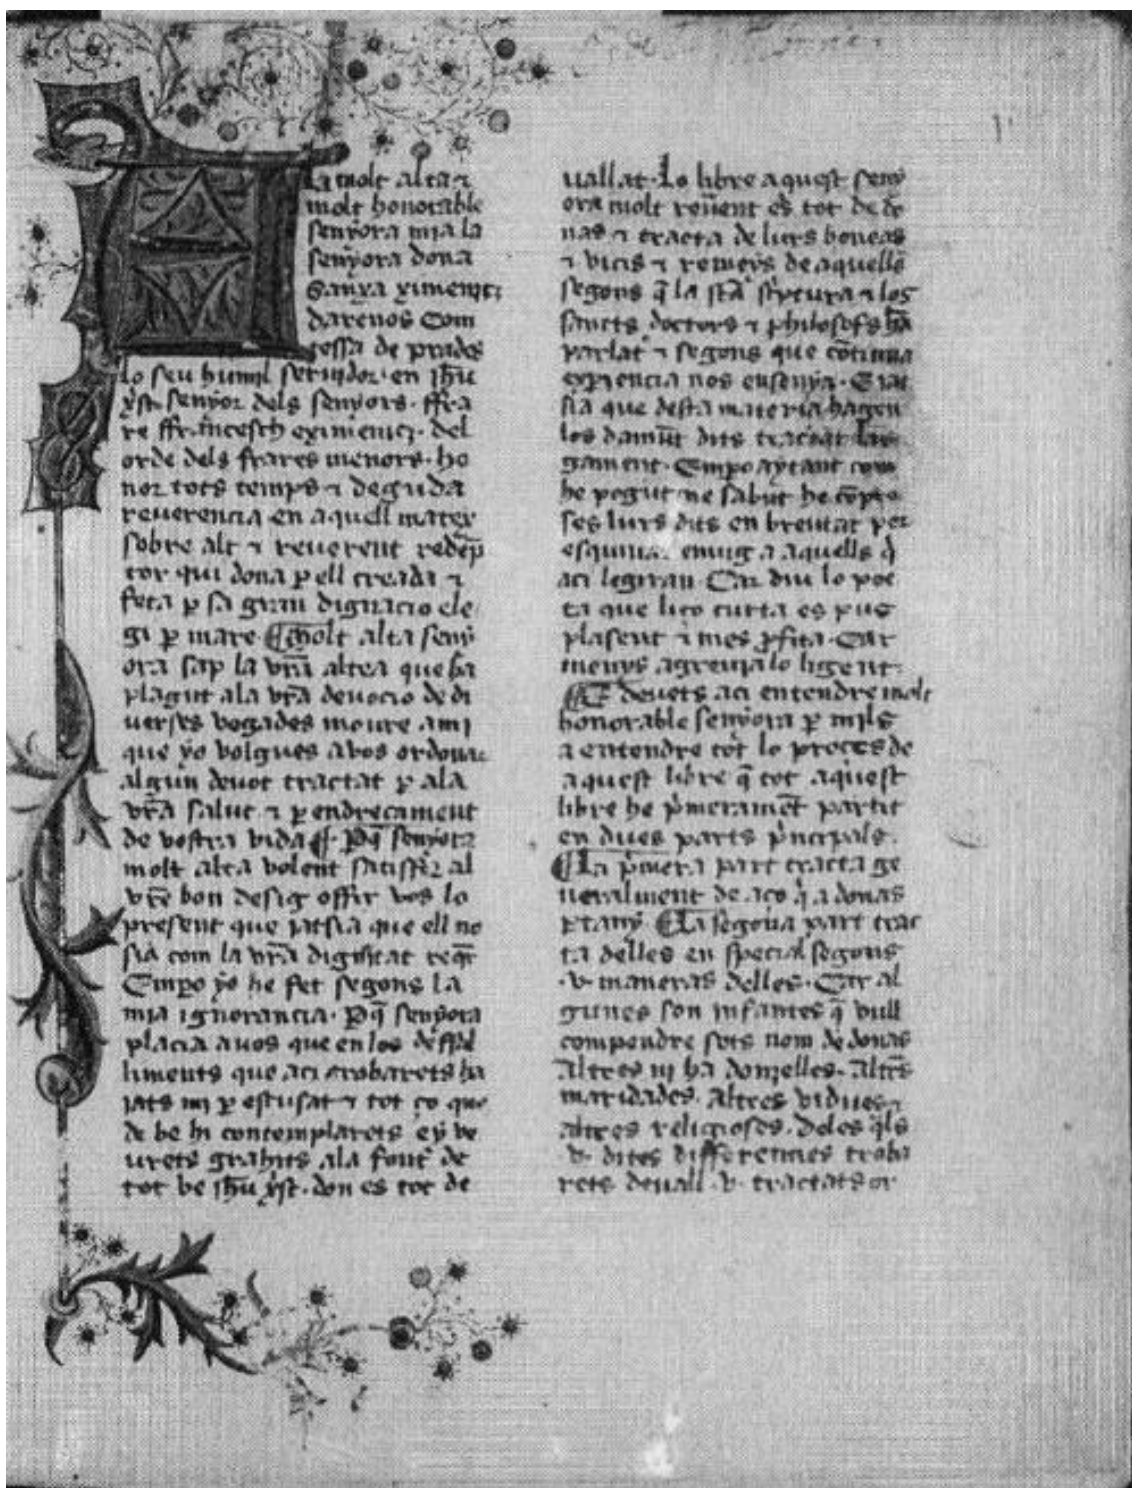 A
la molt alta ⁊
molt honorable
senyora mia la
senyora dona
Sanxa ximeniç
darenos Com
tessa de prades
lo seu humil seruidor en ih̄u
xp̄st senyor dels senyors. ffra
re ffrancesch eximeniç. del
orde dels frares menors. ho
nor tots temps ⁊ deguda
reuerencia en aquell matex
sobre alt ⁊ reuerent redēp
tor qui dona ꝑ ell creada ⁊
feta ꝑ sa gran dignacio ele
gi ꝑ mare. ¶ Molt alta seny
ora sap la vr̄a altea que ha
plagut ala vr̄a deuocio de di
uerses vegades moure ami
que yo volgues a vos ordonar
algun deuot tractat ꝑ ala
vr̄a salut ⁊ ꝑ endreçament
de vostra vida ¶. Pq̄ senyora
molt alta volent satisfer al
vr̄e bon desig offir vos lo
present que jatsia que ell no
sia com la vr̄a dignitat reqr̄
Empo yo he fet segons la
mia ignorancia. Pq̄ senyora
placia auos que en los deffal
liments que aci trobarets ha
iats mi ꝑ escusat ⁊ tot ço que
de be hi contemplarets ey ve
urets grahits ala font de
tot be ih̄u xp̄st. don es tot de
uallat. Lo libre aquest seny
ora molt reuēent es tot de do
nas ⁊ tracta de lurs boneas
⁊ vicis ⁊ remeys de aquells
segons q̄ la st̄a sc̄ptura ⁊ los
sancts doctors ⁊ philosofs hā
parlat ⁊ segons que cōtinua
experiencia nos ensenya. E jat
sia que desta materia hagen
los damūt dits tractat lar
gament. Empo aytant com
he pogut ne sabut he cōpre
ses lurs dits en breutat per
esquiuar enuig a aquells q̄
aci legiran. Car diu lo poe
ta que liço curta es pus
plasent ⁊ mes ꝓfita. Car
menys agreuja lo ligent.
¶ E deuets aci entendre molt
honorable senyora ꝑ mils
a entendre tot lo proces de
aquest libre q̄ tot aquest
libre he p̄merament partit
en dues parts p̄ncipals.
¶ La p̄mera part tracta ge
neralment de aço q̄ a donas
ꝑtany. ¶ La segona part trac
ta delles en special segons
.v. maneras delles. Car al
gunes son infantes q̄ vull
compendre sots nom de donas
Altres ni ha donzelles. Altrēs
maridades. altres vidues ⁊
altres religioses. Deles q̄ls
.v. dites differencies troba
rets deuall .v. tractats or